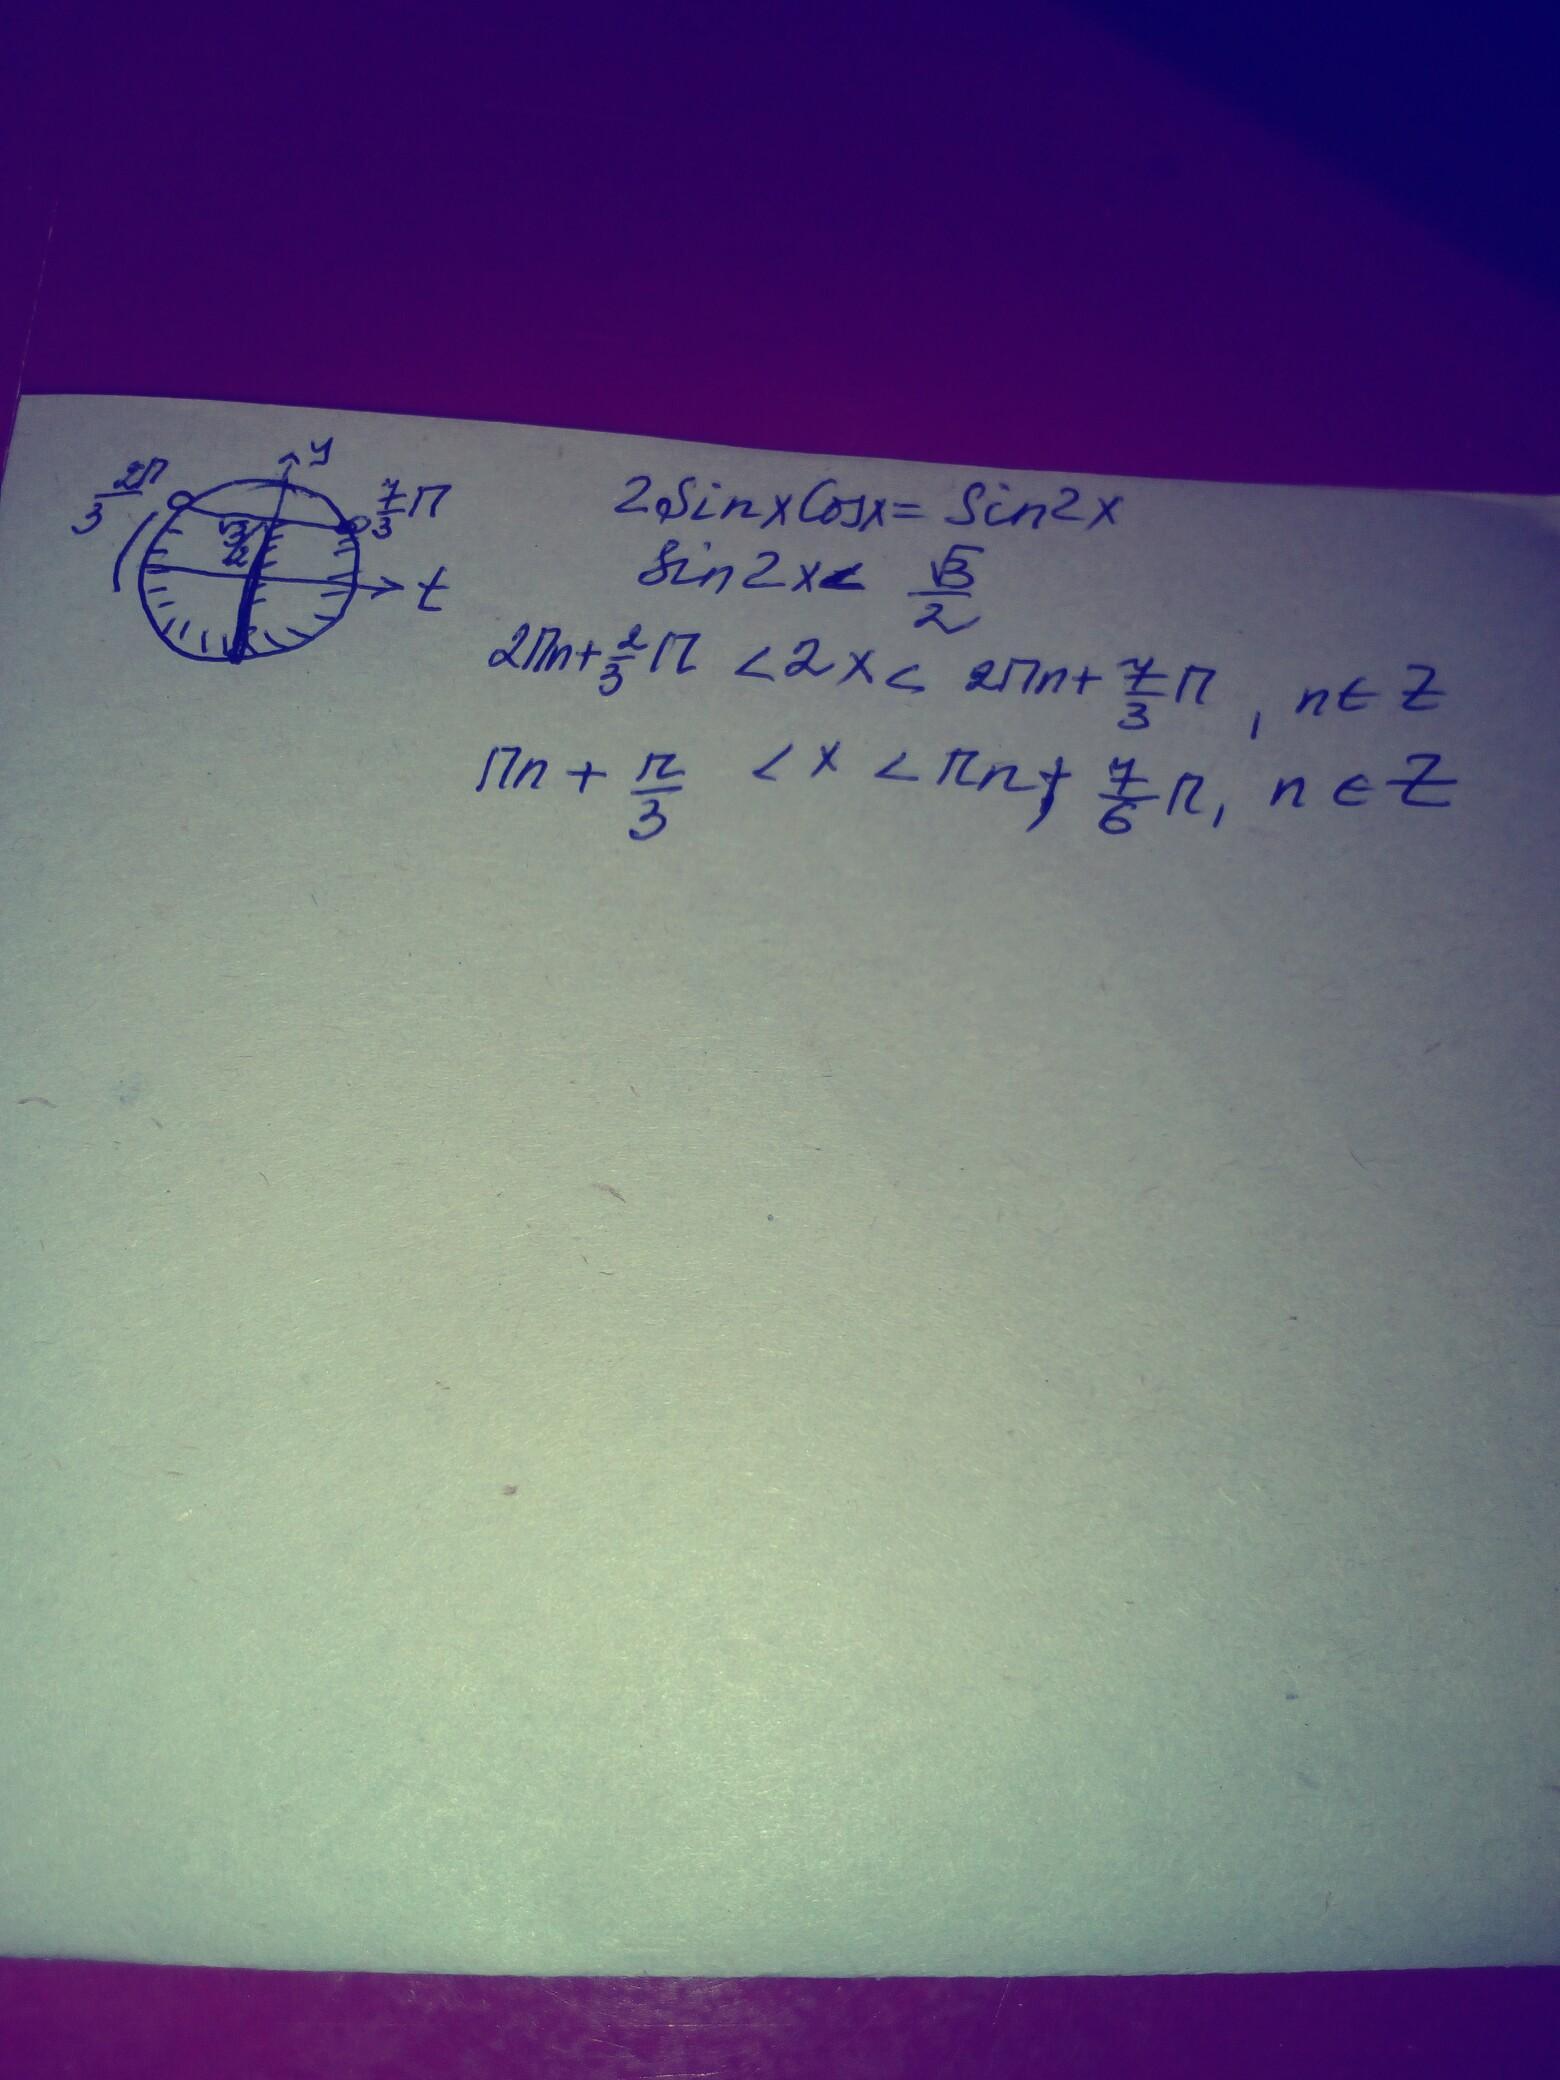 y
2π/3
7/3 π
√3/2
t
2Sinx Cosx = Sin2x
Sin2x < √3/2
2πn + 2/3 π < 2x < 2πn + 7/3 π, n ∈ Z
πn + π/3 < x < πn + 7/6 π, n ∈ Z